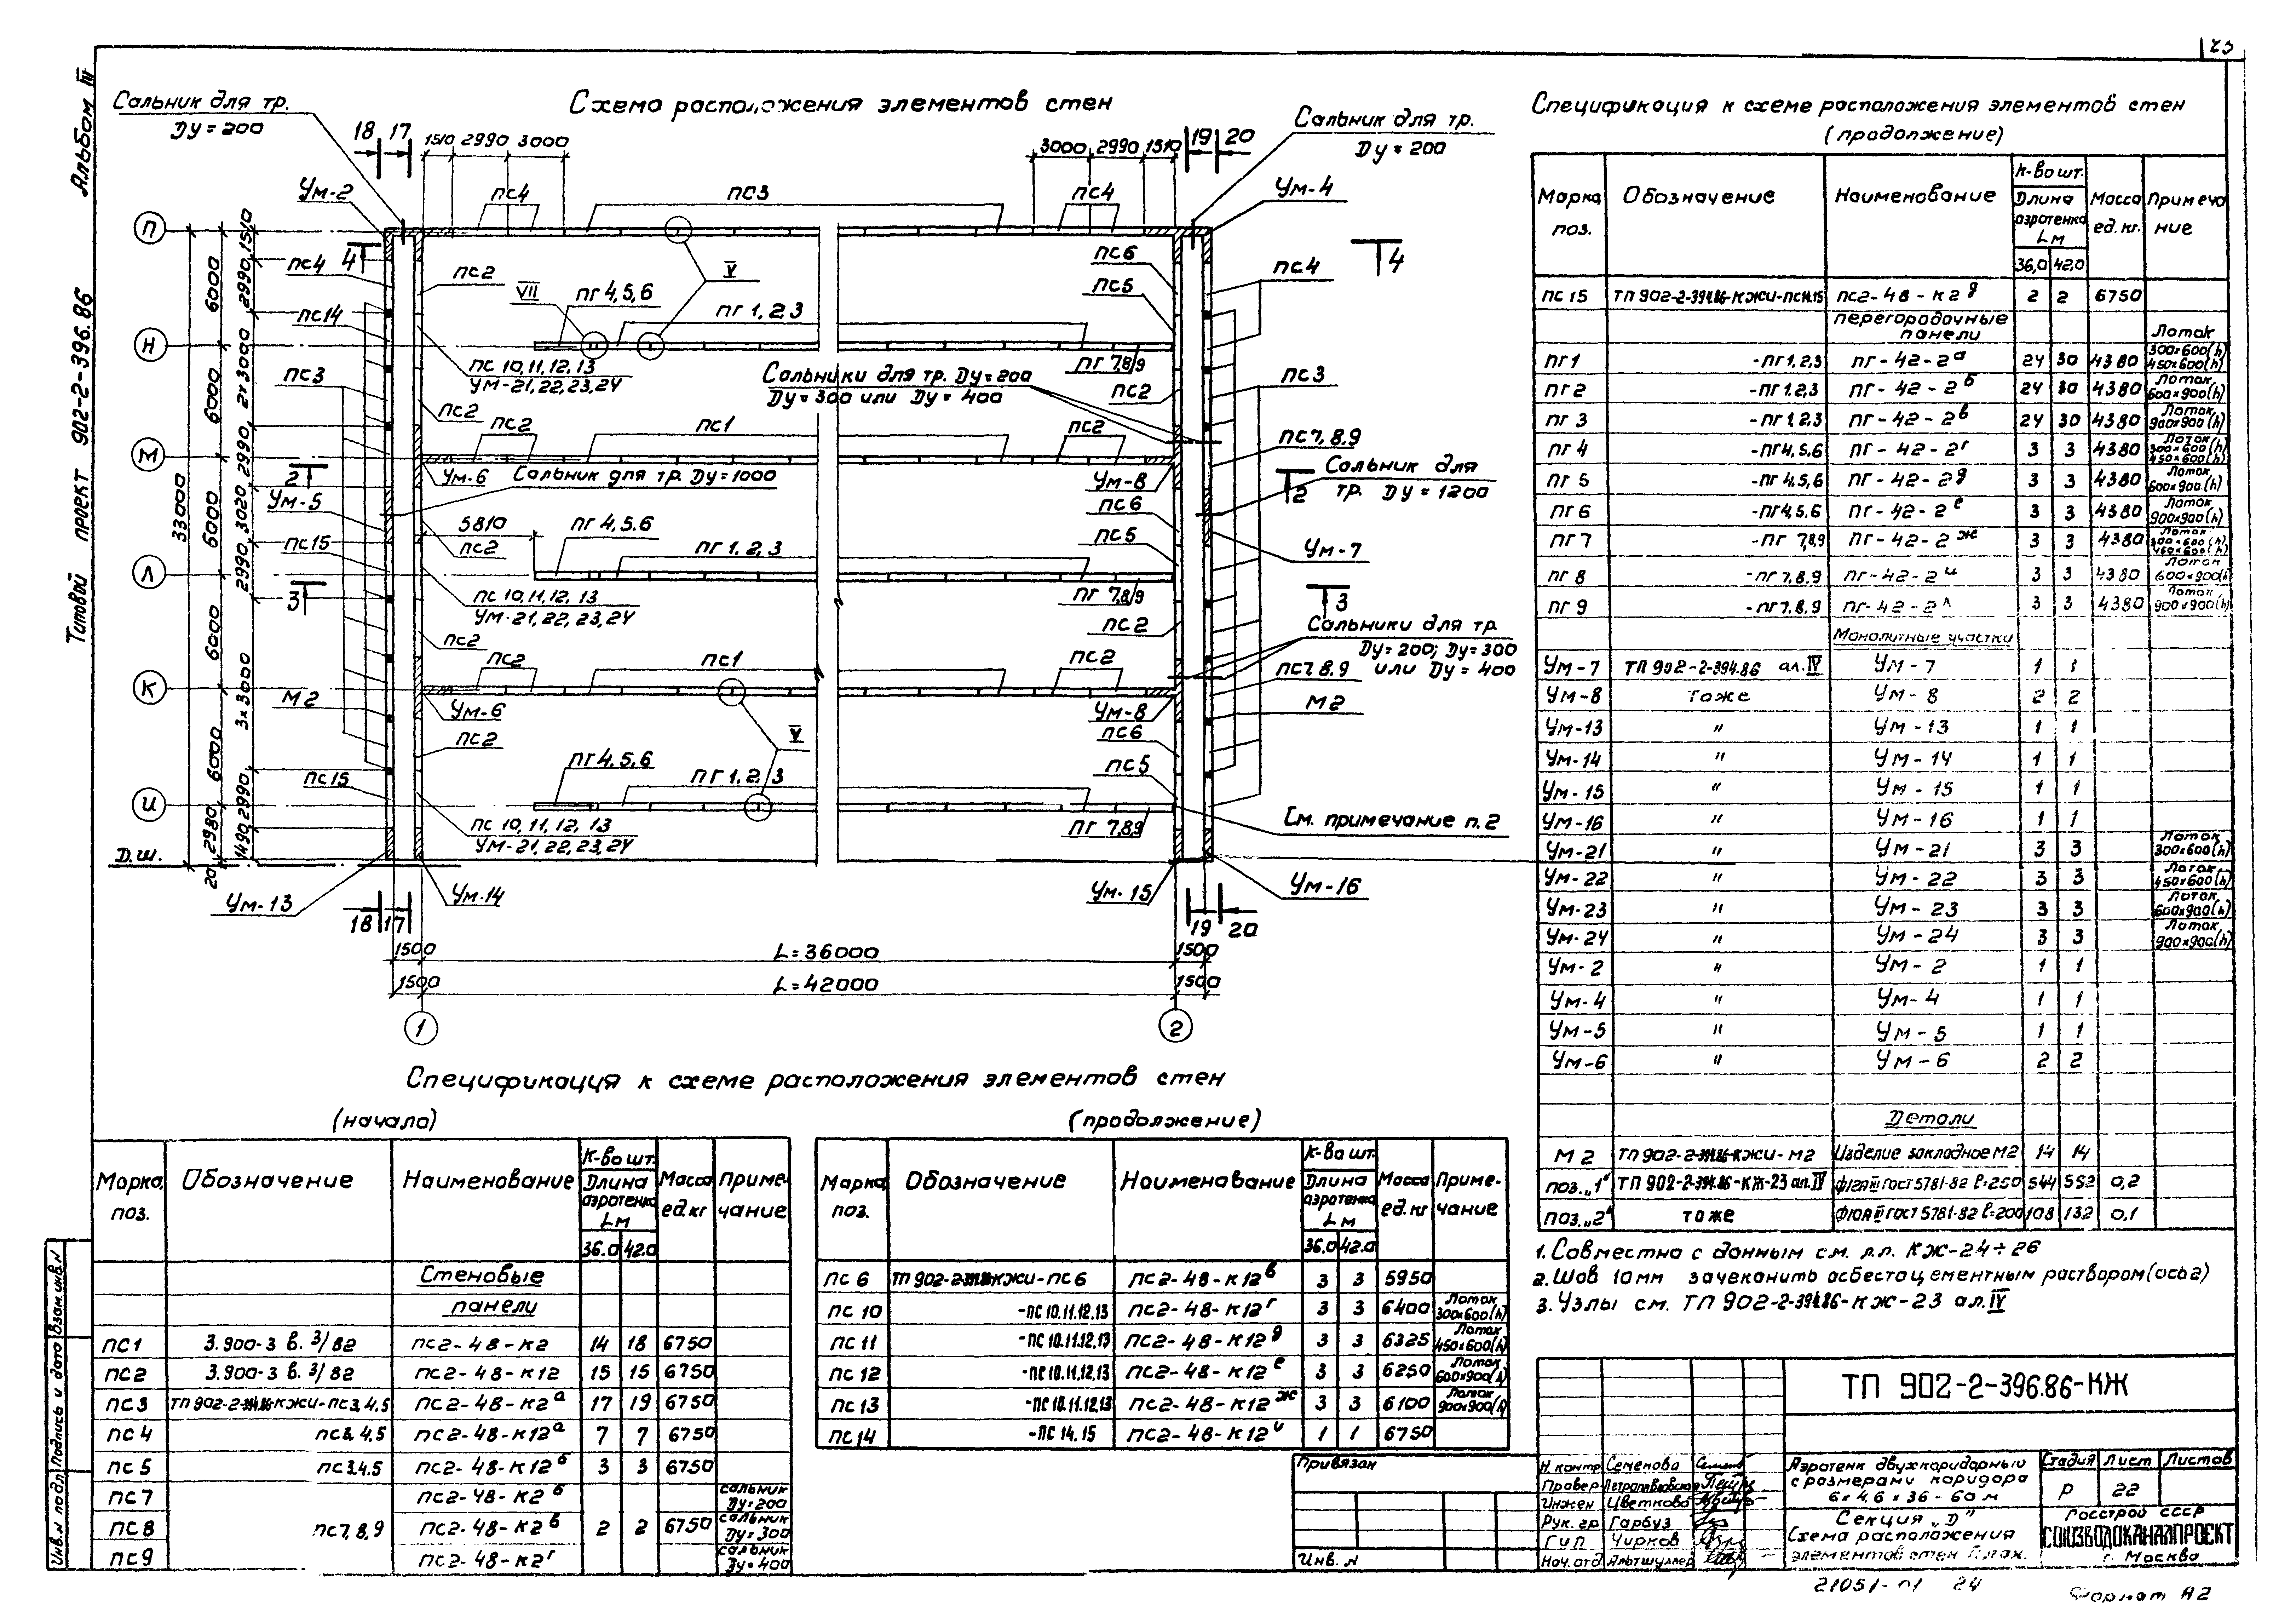 23
Альбом IV
Типовой проект 902-2-396.86
Схема расположения элементов стен
Сальник для тр.
Dу = 200
18 17
1510 2990 3000
3000 2990 1510
19 20
Сальник для тр.
Dу = 200
Ум-2
пс4
пс3
пс4
Ум-4
П
4
пс4
пс2
пс6
4
пс4
V
VII
пг 4,5,6
пг 1,2,3
пс5
пс14
Н
пс 10,11,12,13
Ум-21,22,23,24
пг 7,8,9
пс3
Сальники для тр. Dу=200
Dу=300 или Dу=400
пс2
пс3
пс2
пс2
пс1
пс2
пс7,8,9
М
2
Ум-6
Сальник для тр. Dу=1000
Ум-8
Сальник для
тр. Dу=1200
2
Ум-5
5810
пг 4,5,6
пс6
пс15
пс2
пг 1,2,3
пс5
Ум-7
Л
3
пс 10,11,12,13
Ум-21,22,23,24
пг 7,8,9
3
пс2
пс2
Сальники для тр
Dу=200; Dу=300
или Dу=400
пс2
пс1
пс2
пс7,8,9
К
М2
Ум-6
Ум-8
М2
пс2
V
пс6
пг 4,5,6
пг 1,2,3
пс5
пс15
И
пс 10,11,12,13
Ум-21,22,23,24
пг 7,8,9
См. примечание п.2
Д.ш.
33000
6000
6000
6000
6000
6000
2980
20
1510
2990
2х3000
2990
3020
2990
3х3000
2990
1490
Ум-13
Ум-14
Ум-15
Ум-16
18 17
19 20
1500 L=36000 1500
1500 L=42000 1500
1 2
Спецификация к схеме расположения элементов стен
(начало)
Марка, поз. Обозначение Наименование К-во шт. Длина аэротенка Lм 36.0 42.0 Масса ед.кг Примечание
Стеновые
панели
пс1 3.900-3 в. 3/82 пс2-48-к2 14 18 6750
пс2 3.900-3 в. 3/82 пс2-48-к12 15 15 6750
пс3 ТП 902-2-394.86-КЖИ-пс3,4,5 пс2-48-к2а 17 19 6750
пс4 пс3,4,5 пс2-48-к12а 7 7 6750
пс5 пс3,4,5 пс2-48-к12б 3 3 6750
пс7 пс2-48-к2б сальник Dу=200
пс8 пс7,8,9 пс2-48-к2в 2 2 6750 сальник Dу=300
пс9 пс2-48-к2г сальник Dу=400
(продолжение)
Марка, поз. Обозначение Наименование К-во шт. Длина аэротенка Lм 36.0 42.0 Масса ед.кг Примечание
пс 6 ТП 902-2-394.86-КЖИ-пс6 пс2-48-к12в 3 3 5950
пс 10 -пс 10.11.12.13 пс2-48-к12г 3 3 6400 Лоток 300х600(h)
пс 11 -пс 10.11.12.13 пс2-48-к12д 3 3 6325 Лоток 450х600(h)
пс 12 -пс 10.11.12.13 пс2-48-к12е 3 3 6250 Лоток 600х900(h)
пс 13 -пс 10.11.12.13 пс2-48-к12ж 3 3 6100 Лоток 900х900(h)
пс 14 -пс 14.15 пс2-48-к12и 1 1 6750
Спецификация к схеме расположения элементов стен
(продолжение)
Марка, поз. Обозначение Наименование К-во шт. Длина аэротенка Lм 36,0 42.0 Масса ед.кг. Примечание
пс 15 ТП 902-2-394.86-КЖИ-пс14.15 пс2-48-к2д 2 2 6750
перегородочные
панели
пг1 -пг1,2,3 пг-42-2а 24 30 4380 Лоток 300х600(h) 450х600(h)
пг2 -пг1,2,3 пг-42-2б 24 30 4380 Лоток 600х900(h)
пг 3 -пг1,2,3 пг-42-2в 24 30 4380 Лоток 900х900(h)
пг 4 -пг4,5,6 пг-42-2г 3 3 4380 Лоток 300х600(h) 450х600(h)
пг 5 -пг4,5,6 пг-42-2д 3 3 4380 Лоток 600х900(h)
пг 6 -пг4,5,6 пг-42-2е 3 3 4380 Лоток 900х900(h)
пг 7 -пг 7,8,9 пг-42-2ж 3 3 4380 Лоток 300х600(h) 450х600(h)
пг 8 -пг7,8,9 пг-42-2и 3 3 4380 Лоток 600х900(h)
пг 9 -пг7,8,9 пг-42-2 3 3 4380 Лоток 900х900(h)
Монолитные участки
Ум-7 ТП 902-2-394.86 ал.IV Ум-7 1 1
Ум-8 тоже Ум-8 2 2
Ум-13 " Ум-13 1 1
Ум-14 " Ум-14 1 1
Ум-15 " Ум-15 1 1
Ум-16 " Ум-16 1 1
Ум-21 " Ум-21 3 3 Лоток 300х600(h)
Ум-22 " Ум-22 3 3 Лоток 450х600(h)
Ум-23 " Ум-23 3 3 Лоток 600х900(h)
Ум-24 " Ум-24 3 3 Лоток 900х900(h)
Ум-2 " Ум-2 1 1
Ум-4 " Ум-4 1 1
Ум-5 " Ум-5 1 1
Ум-6 " Ум-6 2 2
Детали
М2 ТП 902-2-394.86-КЖИ-М2 Изделие закладное М2 14 14
поз.„1" ТП 902-2-394.86-КЖ-23 ал.IV ф12АIII ГОСТ 5781-82 l=250 544 552 0,2
поз.„2" тоже ф10АIII ГОСТ 5781-82 l=200 108 132 0,1
1. Совместно с данным см. л.л. КЖ-24÷26
2. Шов 10мм зачеканить асбестоцементным раствором (ось 2)
3. Узлы см. ТП 902-2-394.86-КЖ-23 ал.IV
ТП 902-2-396.86-КЖ
Привязан
Инв. N
Н. контр Семенова
Провер Петропавловская
Инжен Цветкова
Рук. гр Гарбуз
Гип Чирков
Нач. отд Альтшуллер
Аэротенк двухкоридорный
с размерами коридора
6х4,6х36-60м
Секция „D"
Схема расположения
элементов стен План.
Стадия Лист Листов
Р 22
Госстрой СССР
СОЮЗВОДОКАНАЛПРОЕКТ
г. Москва
Инв.N подл. Подпись и дата Взам.инв.N
21051-01 24
Формат А2